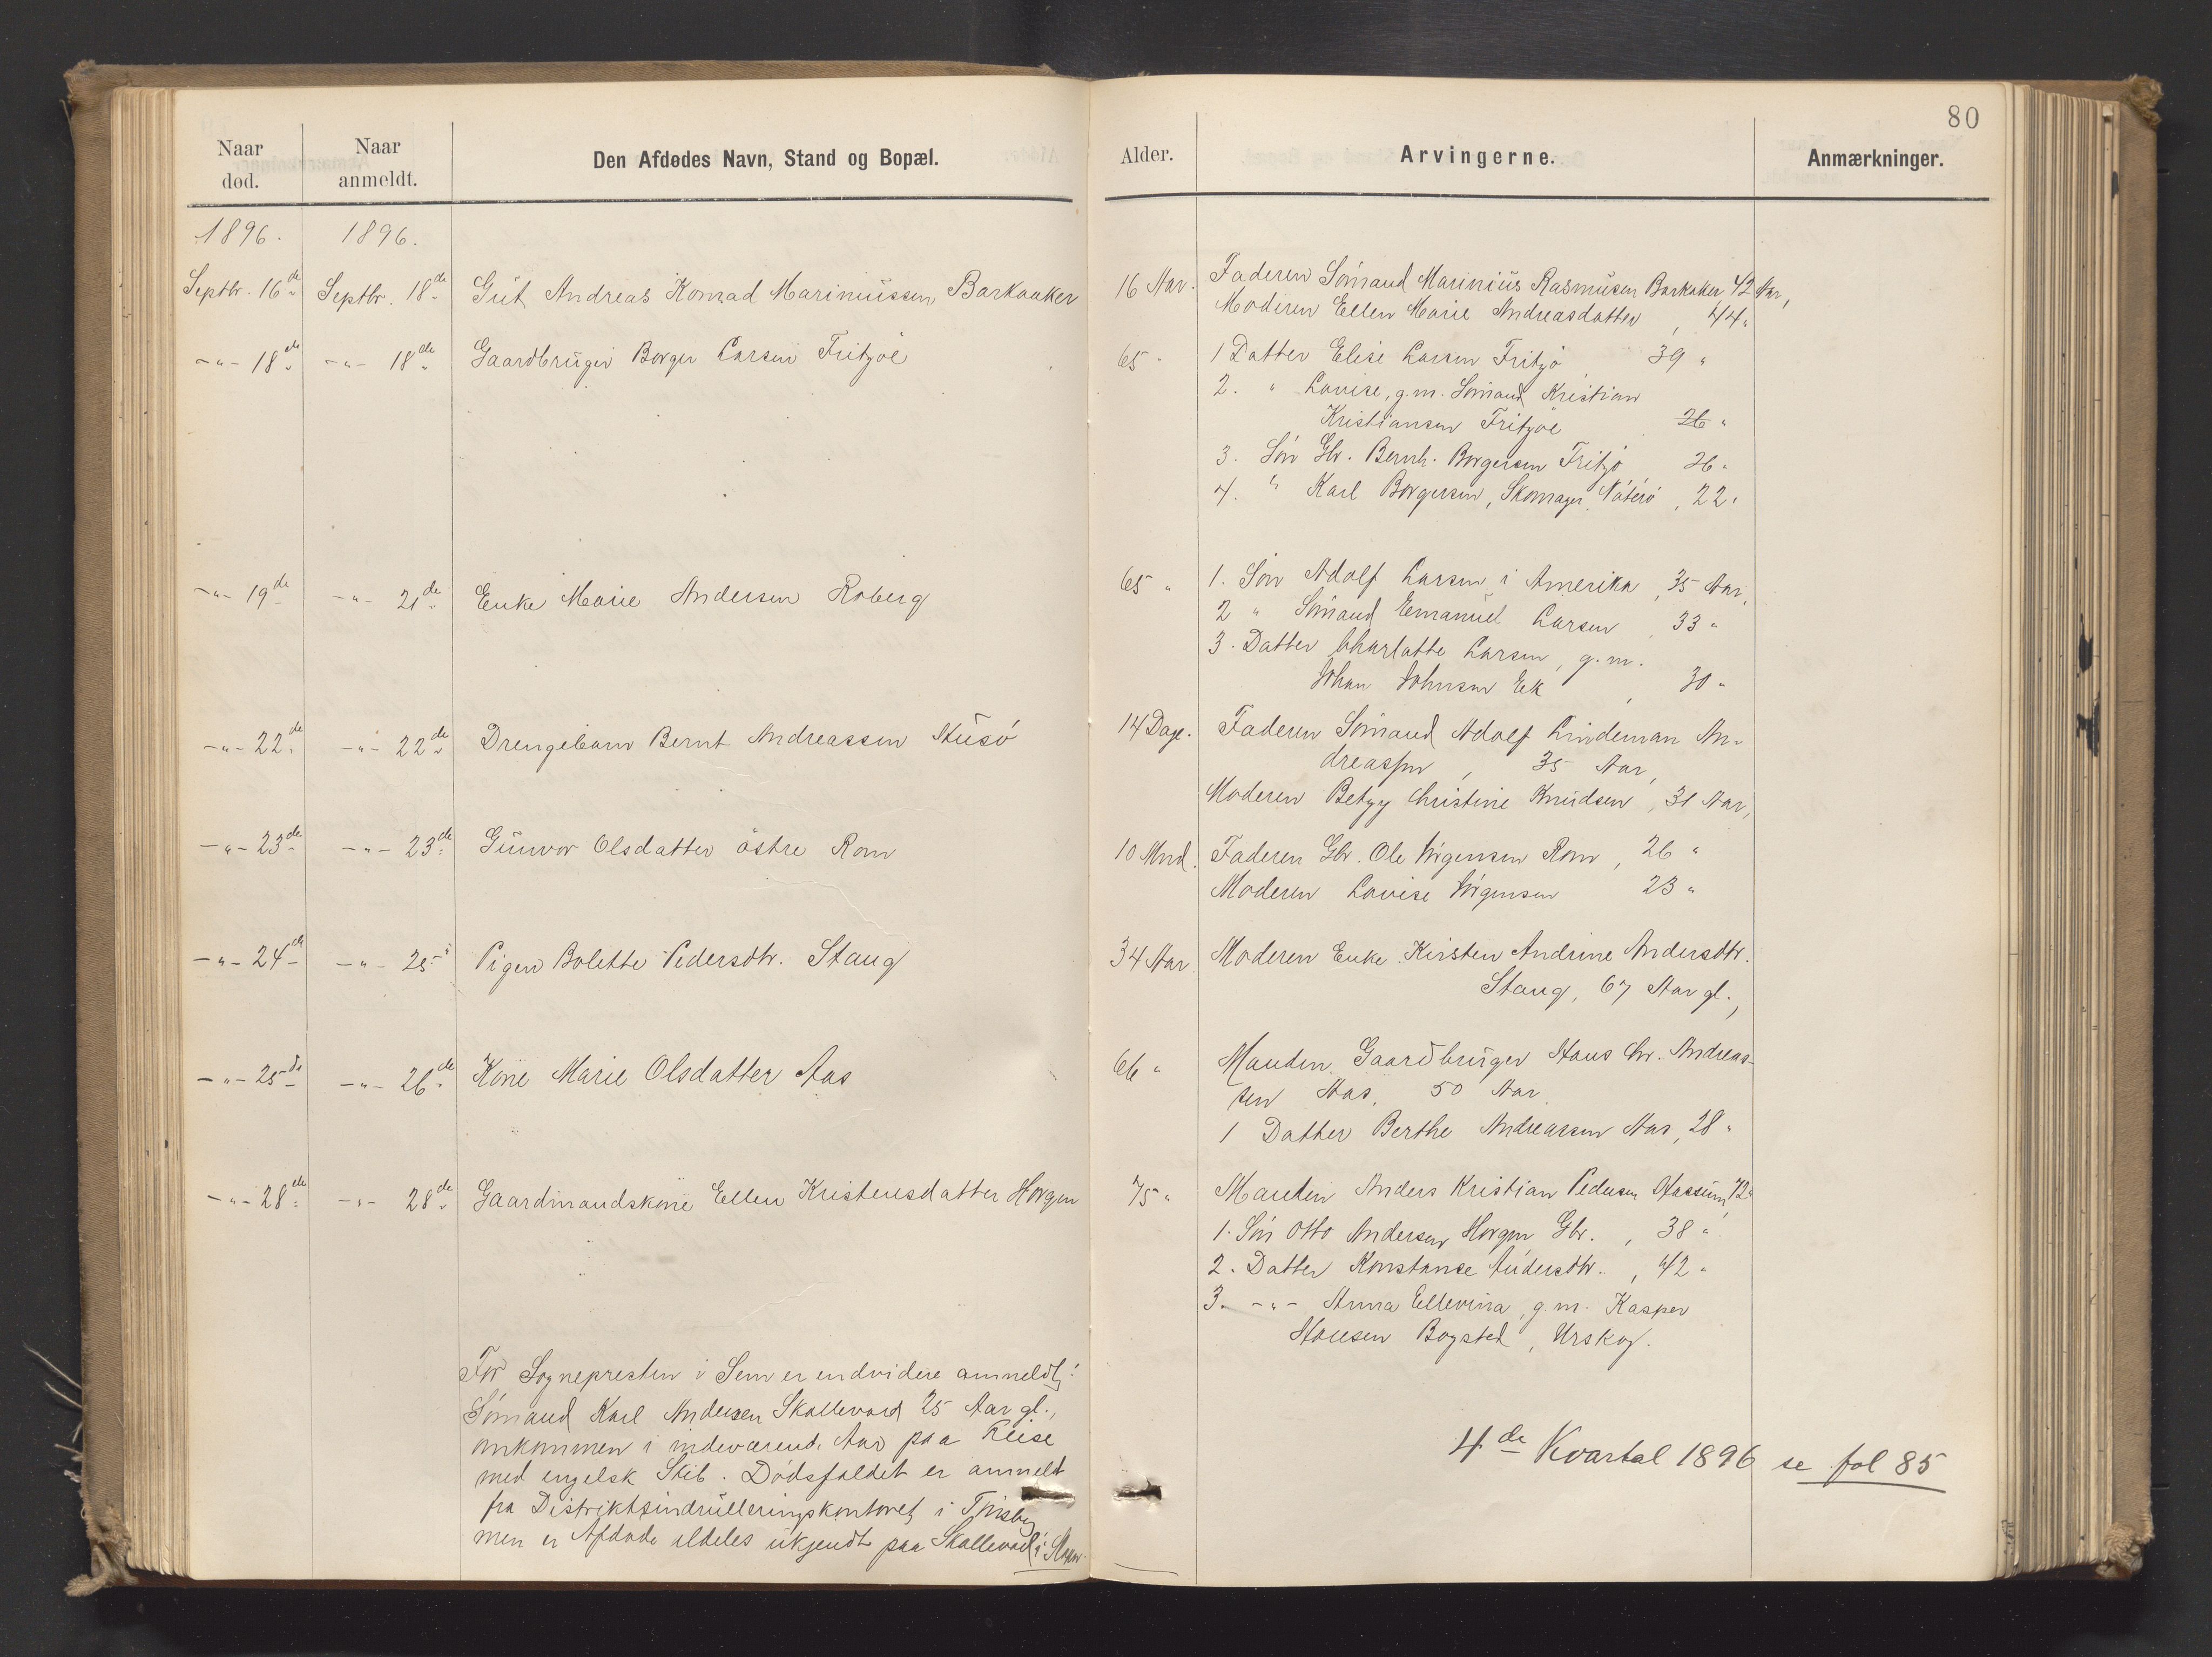 80
Naar død.
Naar anmeldt.
Den Afdødes Navn, Stand og Bopæl.
Alder.
Arvingerne.
Anmærkninger.
1896. 1896.
Septbr. 16de Septbr. 18de Gut Andreas Konrad Marinussen Barkaaker 16 Aar. Faderen Sömand Marinius Rasmusen Barkaker 42 Aar,
Moderen Ellen Marie Andreasdatter, 44 "
-"- 18de -"- 18de Gaardbruger Borger Larsen Fritzöe 65 " 1 Datter Elise Larsen Fritzö, 39 "
2. " Lovise, g.m. Sömand Kristian
Kristiansen Fritzöe 26 "
3. Sön Gbr. Bernh. Borgersen Fritzö 26 "
4. " Karl Borgersen, Skomager, Nöterö, 22 "
-"- 19de -"- 21de Enke Marie Andersen Roberg 65 " 1. Sön Adolf Larsen i Amerika, 35 Aar,
2 " Sömand Emanuel Larsen, 33 "
3. Datter Charlotte Larsen, g.m.
Johan Johnsen Eek, 30 "
-"- 22de -"- 22de Drengebarn Bernt Andreassen Husö 14 Dage. Faderen Sömand Adolf Lindeman An-
dreassen, 35 Aar,
Moderen Betzy Christine Knudsen, 31 Aar,
-"- 23de -"- 23de Gunvor Olsdatter östre Rom 10 Mnd. Faderen Gbr. Ole Jörgensen Rom, 26 "
Moderen Lovise Jörgensen 23 "
-"- 24de -"- 25 Pigen Bolette Pedersdtr. Stang 34 Aar Moderen Enke Kirsten Andrine Andersdtr.
Stang, 67 Aar gl.,
-"- 25de -"- 26de Kone Marie Olsdatter Aas 66 " Manden, Gaardbruger Hans Chr. Andreas-
sen Aas. 50 Aar.
1 Datter Berthe Andreassen Aas, 28 "
-"- 28de -"- 28de Gaardmandskone Ellen Kristensdatter Horgen 75 " Manden Anders Kristian Pedersen 72 "
1. Sön Otto Andersen Horgen Gbr., 38 "
2. Datter Konstanse Andersdtr., 42 "
3. -"- Anna Ellevina, g.m. Kasper
Hansen Bogsted, Urskog.
For Sognepresten i Sem er endvidere anmeldt:
Sömand Karl Andersen Skallevord 25 Aar gl.,
omkommen i indeværende Aar paa Reise
med engelsk Skib. Dödsfaldet er anmeldt
fra Distriktsindrulleringskontoret i Tönsberg
men er Afdöde aldeles ukjendt paa Skallevord i
4de Kvartal 1896 se fol 85